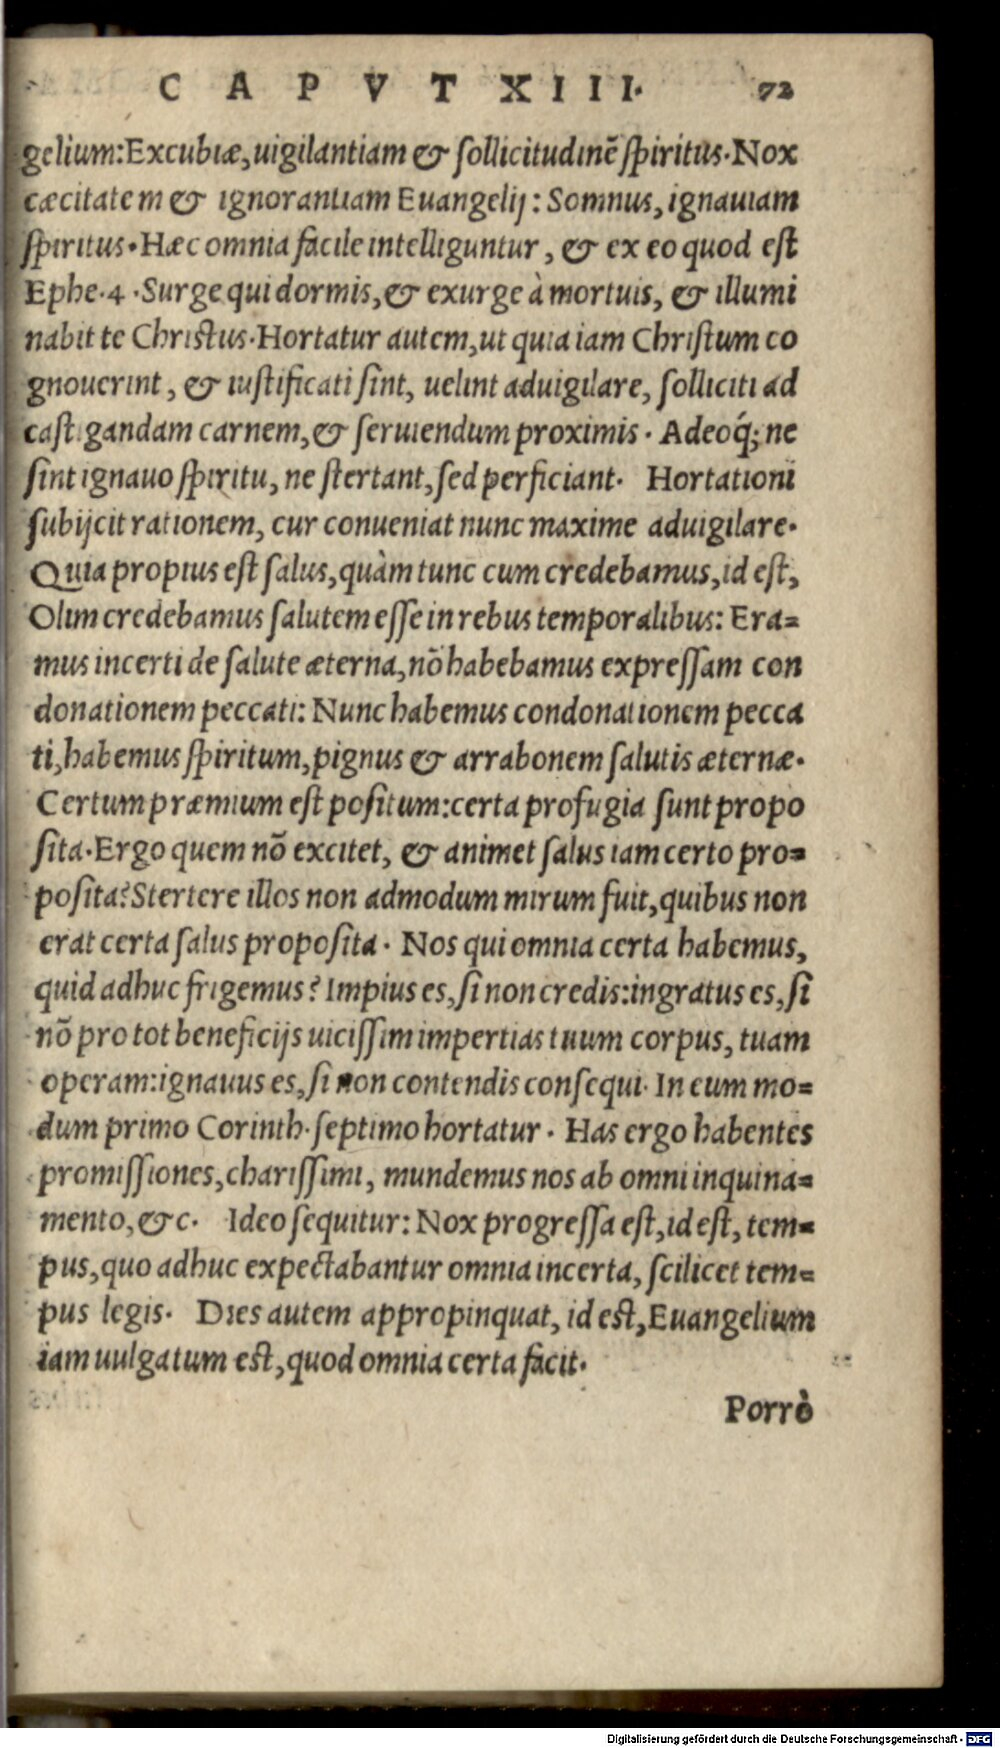 CAPVT XIII. 72
gelium: Excubiæ, uigilantiam & ſollicitudinē ſpiritus. Nox
cæcitatem & ignorantiam Euangelij: Somnus, ignauiam
ſpiritus. Hæc omnia facile intelliguntur, & ex eo quod eſt
Ephe. 4. Surge qui dormis, & exurge à mortuis, & illumi
nabit te Chriſtus. Hortatur autem, ut quia iam Chriſtum co
gnouerint, & iuſtificati ſint, uelint aduigilare, ſolliciti ad
caſtigandam carnem, & ſeruiendum proximis. Adeoq́; ne
ſint ignauo ſpiritu, ne ſtertant, ſed perficiant. Hortationi
ſubijcit rationem, cur conueniat nunc maxime aduigilare.
Quia propius eſt ſalus, quàm tunc cum credebamus, id eſt,
Olim credebamus ſalutem eſſe in rebus temporalibus: Era=
mus incerti de ſalute æterna, nō habebamus expreſſam con
donationem peccati: Nunc habemus condonationem pecca
ti, habemus ſpiritum, pignus & arrabonem ſalutis æternæ.
Certum præmium eſt poſitum: certa profugia ſunt propo
ſita. Ergo quem nō excitet, & animet ſalus iam certo pro=
poſita? Stertere illos non admodum mirum fuit, quibus non
erat certa ſalus propoſita. Nos qui omnia certa habemus,
quid adhuc frigemus? Impius es, ſi non credis: ingratus es, ſi
nō pro tot beneficijs uiciſſim impertias tuum corpus, tuam
operam: ignauus es, ſi non contendis conſequi. In eum mo=
dum primo Corinth. ſeptimo hortatur. Has ergo habentes
promiſſiones, chariſſimi, mundemus nos ab omni inquina=
mento, &c. Ideo ſequitur: Nox progreſſa eſt, id eſt, tem=
pus, quo adhuc expectabantur omnia incerta, ſcilicet tem=
pus legis. Dies autem appropinquat, id eſt, Euangelium
iam uulgatum eſt, quod omnia certa facit.
Porrò
Digitalisierung gefördert durch die Deutsche Forschungsgemeinschaft - DFG